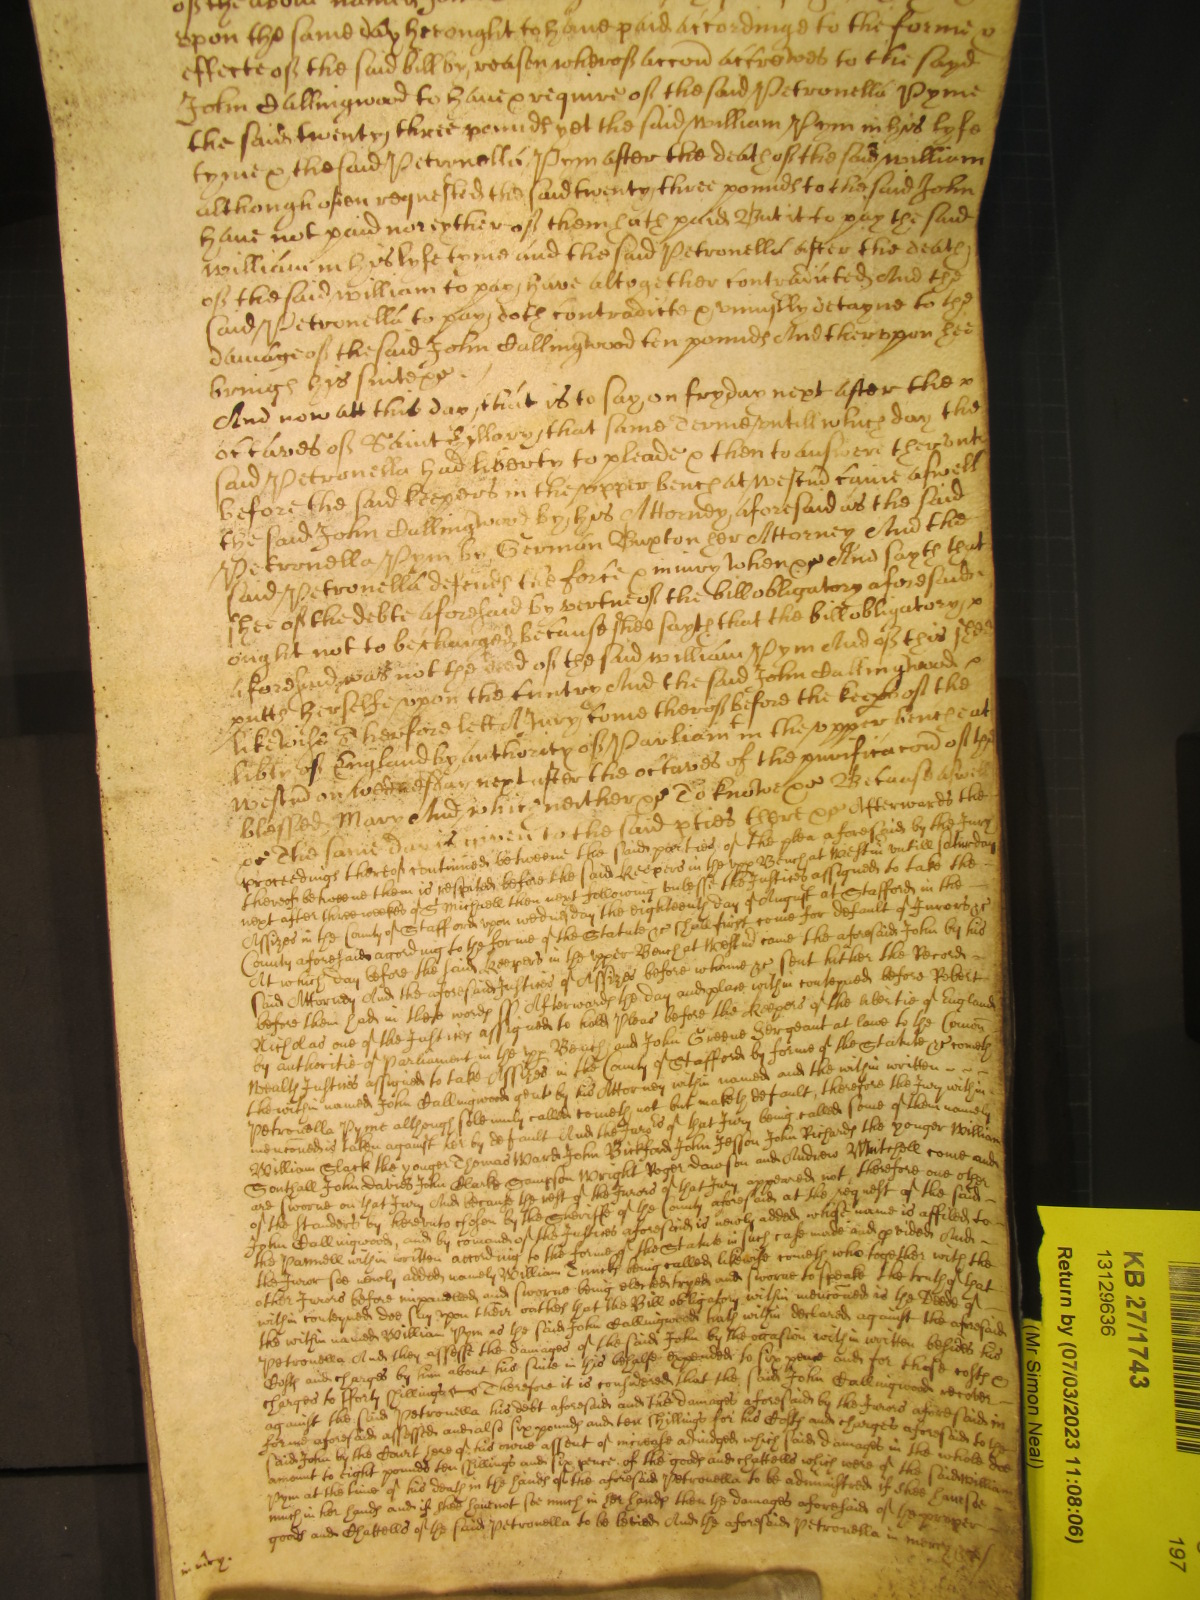 of the above named
upon the same day hee ought to have paid accordinge to the forme &
effecte of the said bill by reason wherof accon accrewes to the sayd
John Callingwood to have & require of the said Petronella Pyme
the said twenty three pounds yet the said William Pym in his lyfe
tyme & the said Petronella Pym after the death of the said William
although often requested the said twenty three pounds to the said John
have not paid nor eyther of them hath paid But it to pay the said
William in his lyfe tyme and the said Petronella after the death
of the said William to pay have altogether contradicted And the
said Petronella to pay doth contradicte & uniustly detayne to the
damage of the said John Callingwood ten pounds And therupon hee
brings his suite &c
And now att this day that is to say on fryday next after the &
octaves of Saint Hillary that same Terme untill which day the
said Petronella had liberty to pleade & then to answere therunto
before the said keepers in the upper bench at Westm came aswell
the said John Callingwood by his Attorney aforesaid as the said
Petronella Pym by German Buxton her Attorney And the
said Petronella defends the force & iniury when &c And sayth that
shee of the debte aforesaid by vertue of the bill obligatory aforesaid
ought not to be charged because shee sayth that the bill obligatory &
aforesaid was not the deed of the said William Pym And of this shee
putts herselfe upon the Cuntry And the said John Callingwood &
likewise Therefore lett A Jury come therof before the keeps of the
libty of England by authority of Parliamt in the upper bench at
Westm on wednesday next after the octaves of the purificacon of the
blessed Mary And which neither &c To knowe &c Because aswell
&c The same day is given to the said pties there &c Afterwards the
proceedings therof continued betweene the said parties of the plea aforesaid by the Jury
therof betweene them is respited before the said Keepers in the upp Bench at Westm untill Saturday
next after three weekes of St Michaell then next following unlesse the Justices assigned to take the
Assizes in the County of Stafford upon wednesday the eighteenth day of August at Stafford in the
County aforesaid according to the forme of the Statute &c shall first come for default of Jurors &c
At which day before the said Keepers in the upper Bench at Westm came the aforesaid John by his
said Attorney And the aforesaid Justices of Assizes before whome &c sent hither the Record
before them had in these words ss Afterwards the day and place within conteyned before Robert
Nicholas one of the Justices assigned to hold Pleas before the Keepers of the libertie of England
by authoritie of Parliament in the upp Bench and John Greene Sergeant at lawe to the Comon
wealth Justices assigned to take Assizes in the County of Stafford by forme of the Statute &c cometh
the within named John Callingwood gent by his Attorney within named and the within written
Petronella Pyme although solemnly called cometh not but maketh default, therefore the Jury within
menconed is taken against her by default And the Jurors of that Jury being called some of them namely
William Slack the yonger Thomas Ward John Bickford John Jesson John Richards the yonger William
Southall John Davies John Clarke Sampson Wright Roger Dawson and Andrew Mitchell come and
are sworne on that Jury And because the rest of the Jurors of that Jury appeared not, therefore one other
of the Standers by hereunto chosen by the Sheriffe of the County aforesaid at the request of the said
John Callingwood, and by comand of the Justices aforesaid is newly added whose name is affiled to
the Pannell within written according to the forme of the Statute in such case made and pvided And
the Juror soe newly added namely William being called likewise cometh who together with the
other Jurors before impannelled and sworne being elected tryed and sworne to speake the truth of that
within conteyned doe say upon their oathes that the Bill obligatory within menconed is the Deede of
the within named William Pym as the said John Callingwood hath within declared against the aforesaid
Petronella And they assesse the damages of the said John by the occasion within written besides his
Costs and charges by him about his suite in his behalfe expended to six pence and for those costs &
charges to fforty shillings Therefore it is considered that the said John Callingwood recover
against the said Petronella his debt aforesaid and the damages aforesaid by the Jurors aforesaid in
forme aforesaid assessed and also six pounds and ten shillings for his Costs and charges aforesaid to the
said John by the Court here of his owne assent of increase adiudged which said Damages in the whole doe
amount to eight pounds ten shillings and six pence of the goods and chattells which were of the said William
Pym at the time of his death in the hands of the aforesaid Petronella to be administred if shee have soe
much in her hands and if shee have not soe much in her hands then the damages aforesaid of the proper
goods and Chattells of the said Petronella to be levied And the aforesaid Petronella in mercy &c
in mercy.
KB 27/1743
13129636
Return by (07/03/2023 11:08:06)
(Mr Simon Neal)
197